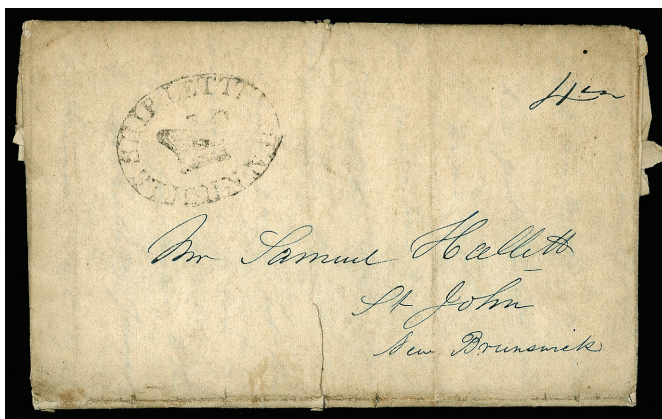 4
SHIP LETTER
Mr Samuel Hallett
St John
New Brunswick